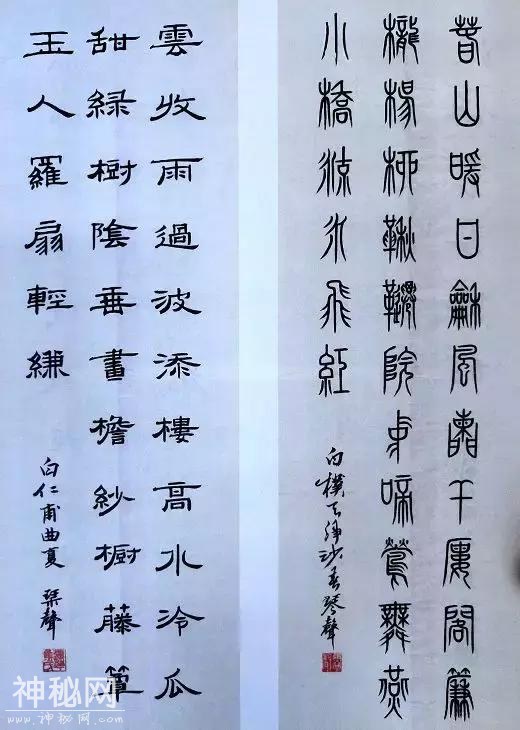 春山暖日龢風闌干樓閣簾
櫳楊柳鞦韆院中啼鶯舞燕
小橋流水飛紅
白樸天淨沙春琴聲
雲收雨過波添樓高水冷瓜
甜綠樹陰垂畫檐紗橱藤簟
玉人羅扇輕縑
白仁甫曲夏 琴聲
神秘网
www.神秘网.com